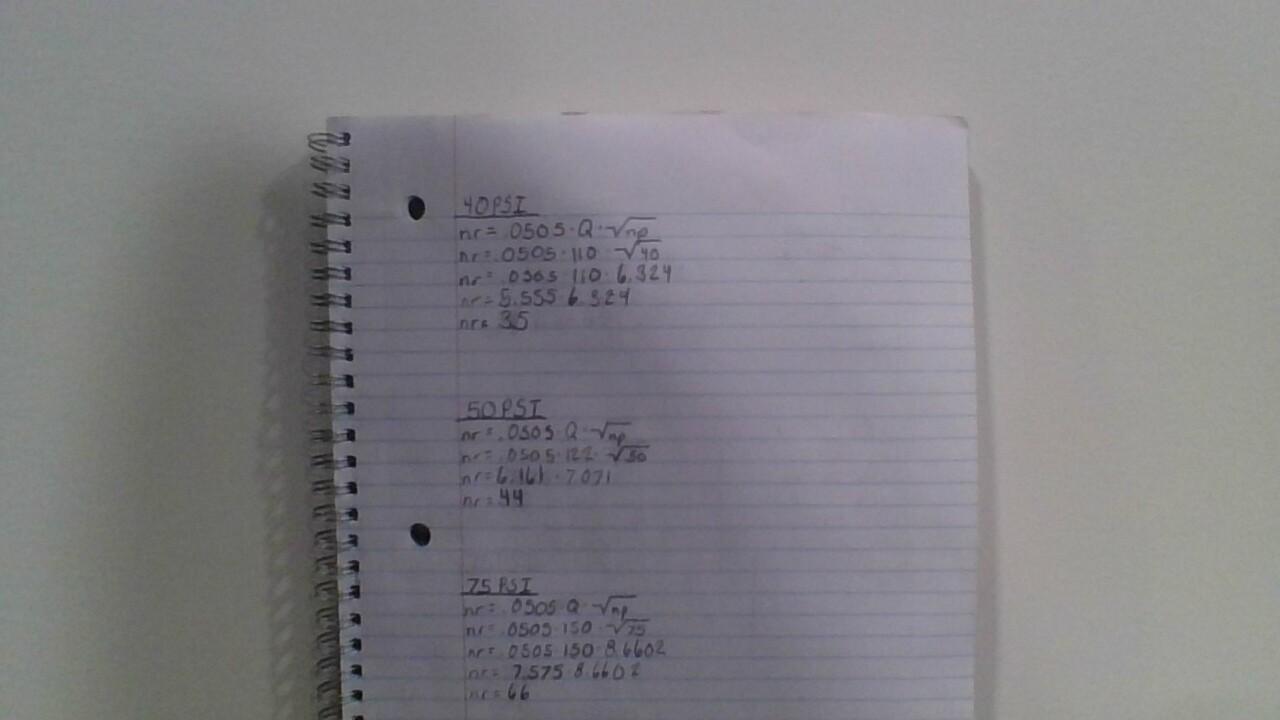 40 PSI
nr = .0505 · Q · √np
nr = .0505 · 110 · √40
nr = .0505 · 110 · 6.324
nr = 5.555 · 6.324
nr = 35
50 PSI
nr = .0505 · Q · √np
nr = .0505 · 122 · √50
nr = 6.161 · 7.071
nr = 44
75 PSI
nr = .0505 · Q · √np
nr = .0505 · 150 · √75
nr = .0505 · 150 · 8.6602
nr = 7.575 · 8.6602
nr = 66